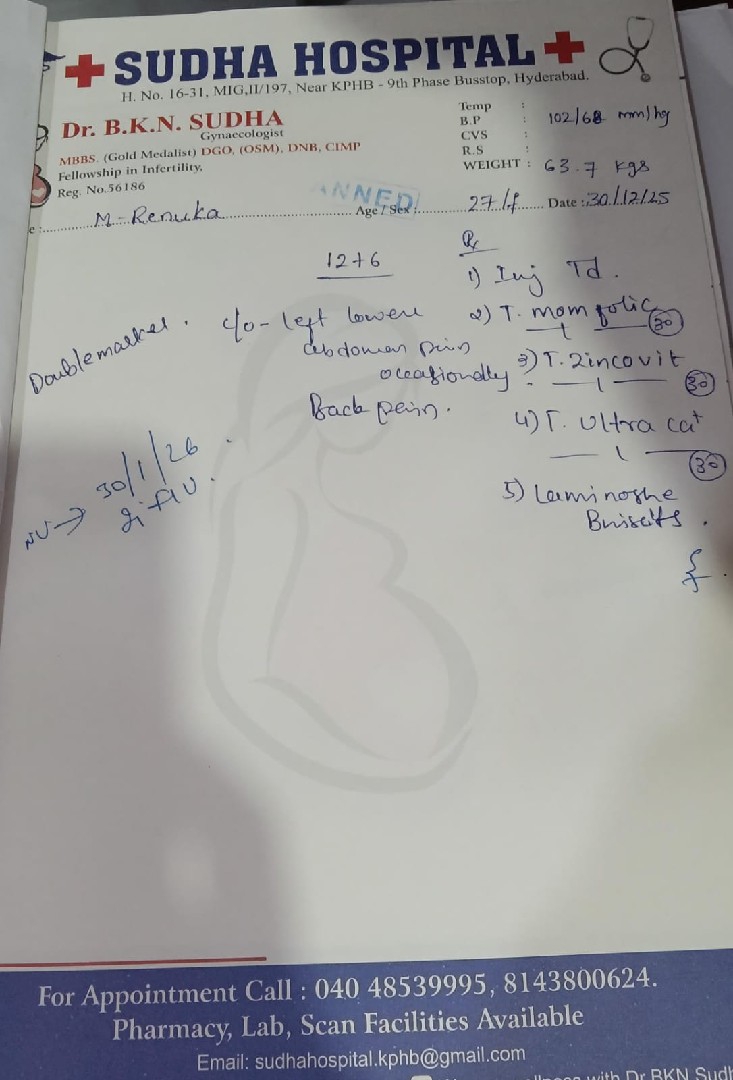 SUDHA HOSPITAL
H. No. 16-31, MIG,II/197, Near KPHB - 9th Phase Busstop, Hyderabad.
Dr. B.K.N. SUDHA
Gynaecologist
MBBS. (Gold Medalist) DGO, (OSM), DNB, CIMP
Fellowship in Infertility,
Reg. No.56186
Temp :
B.P : 102/68 mm/hg
CVS :
R.S :
WEIGHT : 63.7 kgs
ANNED
e : M-Renuka Age / Sex : 27/f Date : 30/12/25
12+6
Doublemarker.
c/o - left lower
abdomen pain
occasionally.
Back pain.
Rx
1) Inj Td.
2) T. mom folic
— 1 — 30
3) T. Zincovit
— 1 — 30
4) T. Ultra cal
— 1 — 30
5)
NV → 30/1/26
For Appointment Call : 040 48539995, 8143800624.
Pharmacy, Lab, Scan Facilities Available
Email: sudhahospital.kphb@gmail.com
with Dr BKN Sudh